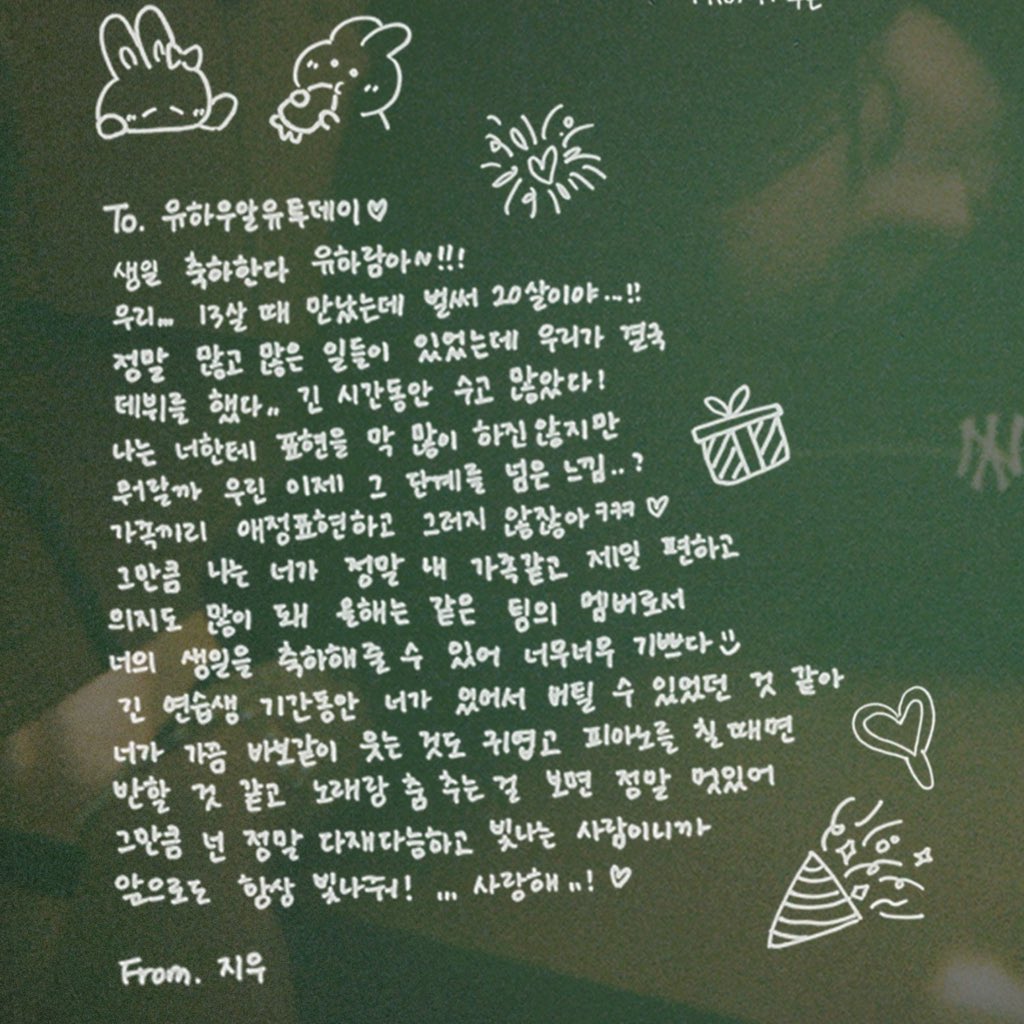 To. 유하우알유투데이♡
생일 축하한다 유하람아~!!!
우리... 13살 때 만났는데 벌써 20살이야...!!
정말 많고 많은 일들이 있었는데 우리가 결국
데뷔를 했다.. 긴 시간동안 수고 많았다!
나는 너한테 표현을 막 많이 하진 않지만
뭐랄까 우린 이제 그 단계를 넘은 느낌..?
가족끼리 애정표현하고 그러지 않잖아ㅋㅋㅋ♡
그만큼 나는 너가 정말 내 가족같고 제일 편하고
의지도 많이 돼 올해는 같은 팀의 멤버로서
너의 생일을 축하해줄 수 있어 너무너무 기쁘다
긴 연습생 기간동안 너가 있어서 버틸 수 있었던 것 같아
너가 가끔 바보같이 웃는 것도 귀엽고 피아노를 칠 때면
반할 것 같고 노래랑 춤 추는 걸 보면 정말 멋있어
그만큼 넌 정말 다재다능하고 빛나는 사람이니까
앞으로도 항상 빛나줘! ... 사랑해..! ♡
From. 지우